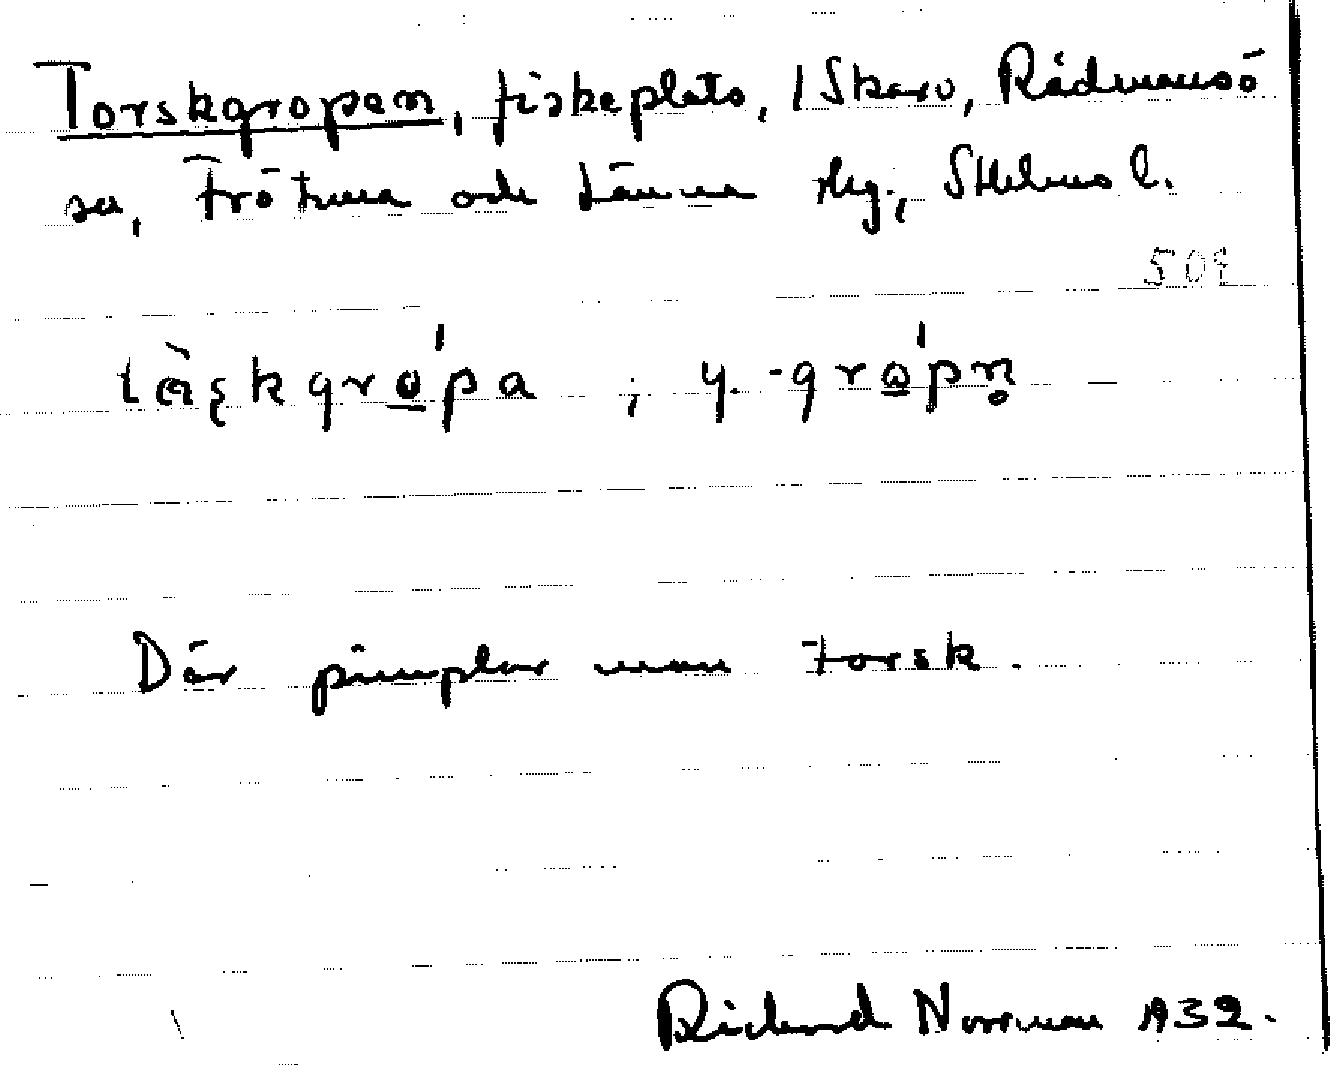 Torskgropen, fiskeplats, I Skarv, Rådmansö
sn, Frötuna och Länna skg., Sthlms l.
509
tàşkgro̲'pa ; y. -gro̲'pn̥
Där pimplar man torsk.
Richard Norrman 1932.